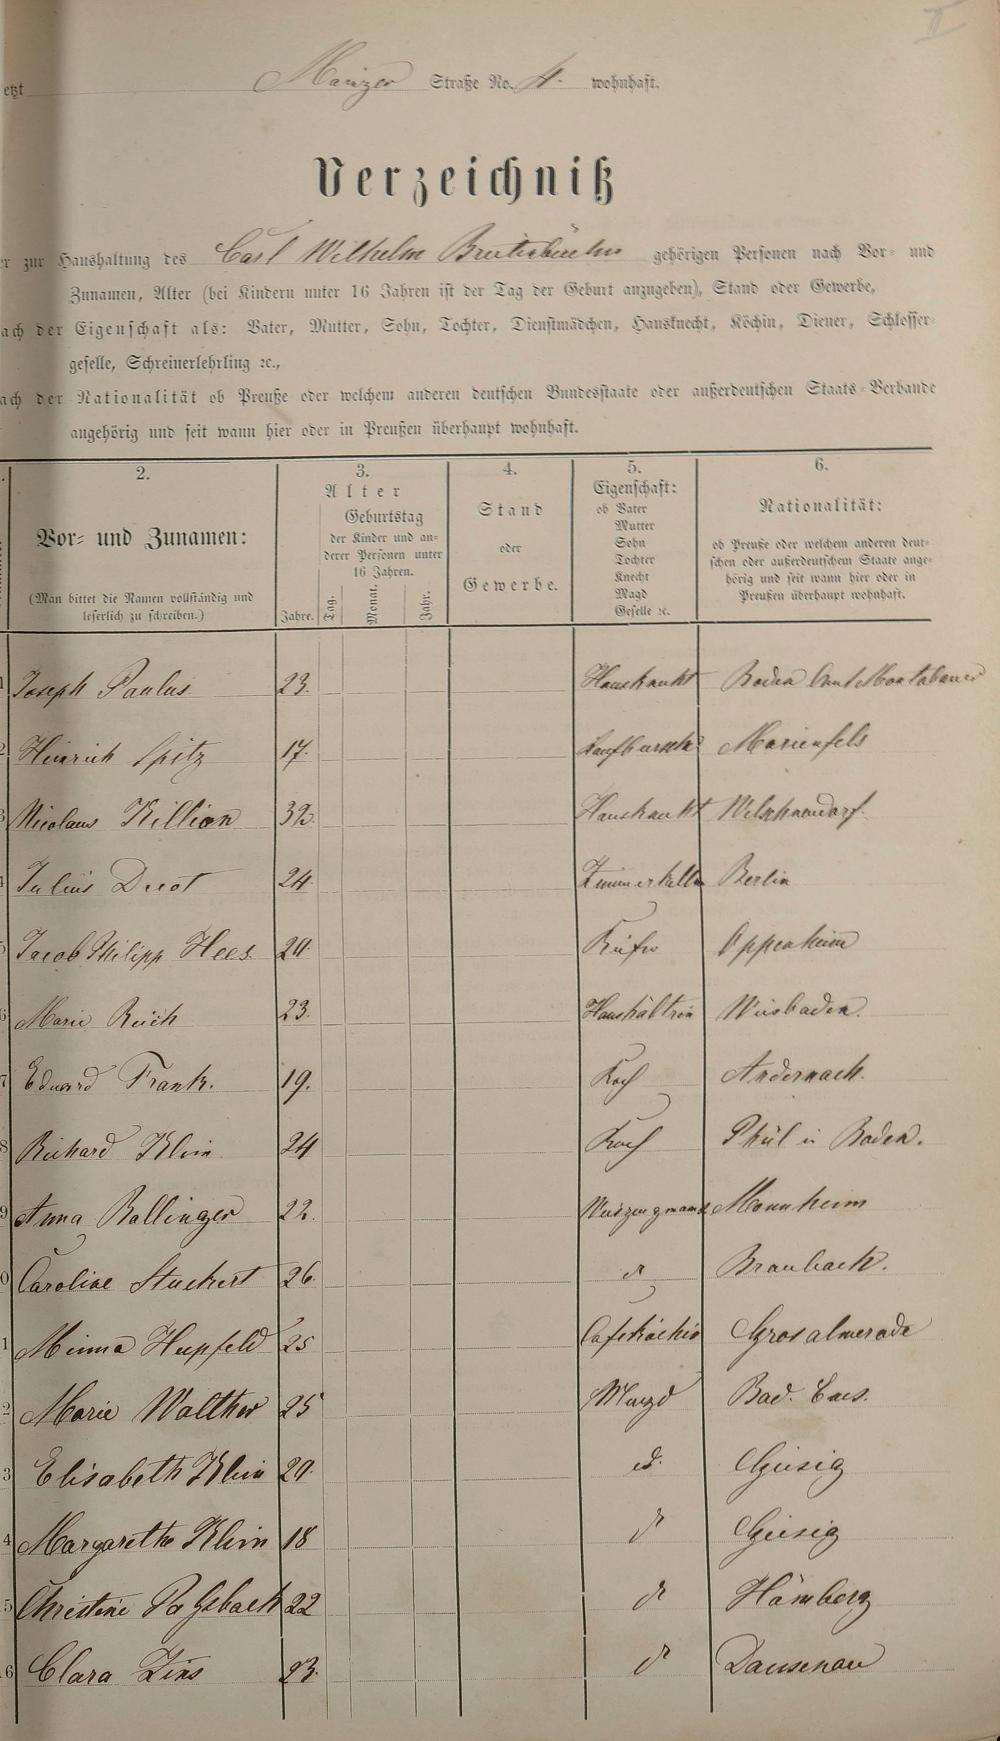 II
etzt Mainzer Straße No. 4. wohnhaft.
Verzeichniß
er zur Haushaltung des Carl Wilhelm gehörigen Personen nach Vor- und
Zunamen, Alter (bei Kindern unter 16 Jahren ist der Tag der Geburt anzugeben), Stand oder Gewerbe,
ach der Eigenschaft als: Vater, Mutter, Sohn, Tochter, Dienstmädchen, Hausknecht, Köchin, Diener, Schlosser-
geselle, Schreinerlehrling ꝛc.,
ach der Nationalität ob Preuße oder welchem anderen deutschen Bundesstaate oder außerdeutschen Staats-Verbande
angehörig und seit wann hier oder in Preußen überhaupt wohnhaft.
2. 3. 4. 5. 6.
Vor- und Zunamen:
(Man bittet die Namen vollständig und
leserlich zu schreiben.)
Alter
Geburtstag
der Kinder und an-
derer Personen unter
16 Jahren.
Jahre. Tag. Monat. Jahr.
Stand
oder
Gewerbe.
Eigenschaft:
ob Vater
Mutter
Sohn
Tochter
Knecht
Magd
Geselle ꝛc.
Nationalität:
ob Preuße oder welchem anderen deut-
schen oder außerdeutschem Staate ange-
hörig und seit wann hier oder in
Preußen überhaupt wohnhaft.
1 Joseph Paulus 23. Hausknecht Boden Amt Montabaur
2 Heinrich Spitz 17. Laufbursche Marienfels
3 Nicolaus Killian 32. Hausknecht Welschneudorf.
4 Julius 24. Zimmerkelln Berlin
5 Jacob Philipp Hees. Küfer Oppenheim
6 Marie 23. Haushältrin Wiesbaden.
7 Eduard Frank. 19. Koch Andernach.
8 Richard Klein 24 Koch in Baden.
9 Anna Ballinger 22. Mannheim
0 Caroline Stuckert 26. d Braubach.
1 Minna Hupfeld 25 Cafeköchin Grosalmerode
2 Marie Walther 25 Magd Bad. Ems.
3 Elisabeth Klein d. Geisig
4 Margarethe Klein 18 d Geisig
5 Christine 22 d Hömberg
6 Clara Zins 23. d Dausenau